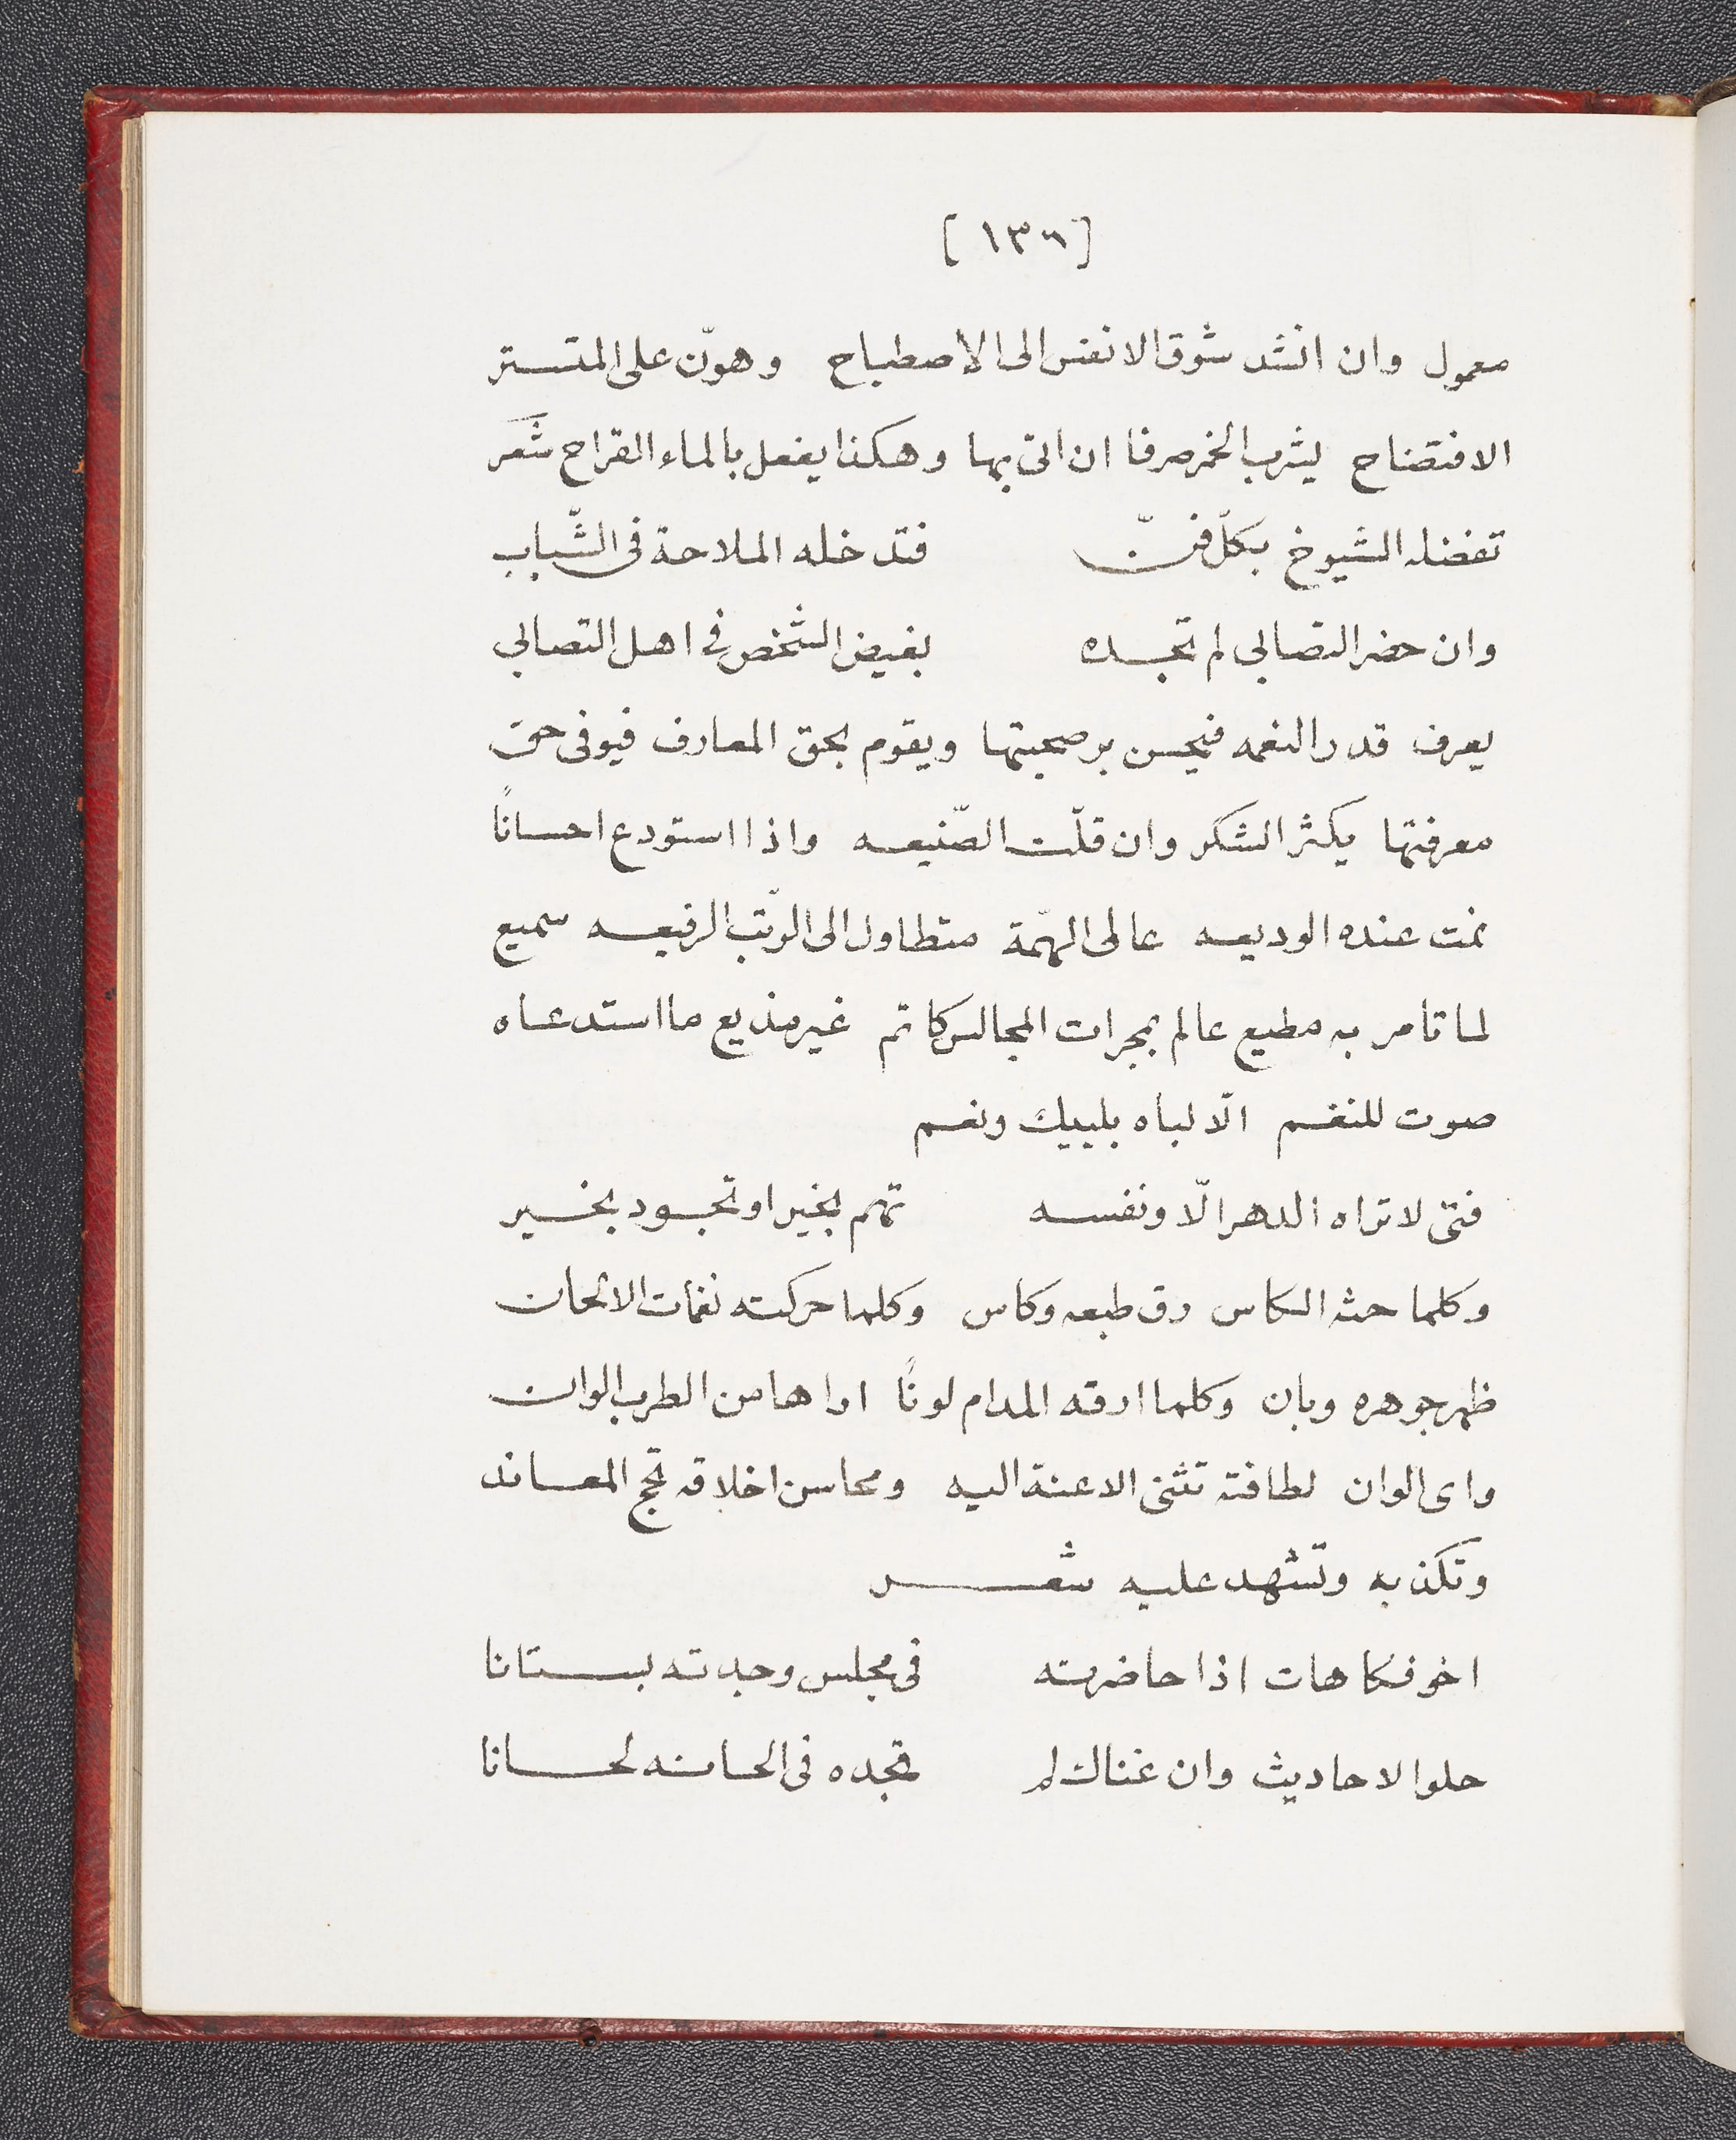 [١٣٦]
معمول وان انشد شوق الانفس الى الاصطباح وهوّن على المتستر
الافتضاح يشرب الخمر صرفا ان اتى بها وهكذا يفعل بالماء القراح شعر
تفضله الشيوخ بكلّ فنّ فتدخله الملاحة فى الشّباب
وان حضر التصابي لم تجده بغيض الشخص فى اهل التصابي
يعرف قدر النغمه فيحسن بر صحبتها ويقوم بحق المعارف فيوفى حق
معرفتها يكثر الشكر وان قلّت الصّنيعه واذا استودع احسانًا
نمت عنده الوديعه عالى الهمّة متطاول الى الرّتب الرفيعه سميع
لما تامر به مطيع عالم بمجرات المجالس كاتم غير مذيع ما استدعاه
صوت للنغم الّا لباه بلبيك ونعم
فتى لا تراه الدهر الّا ونفسه تهم بخير او تجود بخير
وكلما حثه الكاس رق طبعه وكاس وكلما حركته نغمات الالحان
ظهر جوهره وبان وكلما ارقه المدام لونًا اراها من الطرب الوان
واى الوان لطافته تثنى الاعنة اليه ومحاسن اخلاقه تحج المعاند
وتكذبه وتشهد عليه شعر
اخو فكاهات اذا حاضرته فى مجلس وجدته بستانا
حلو الاحاديث وان غناك لم تجده فى الحانه لحانا